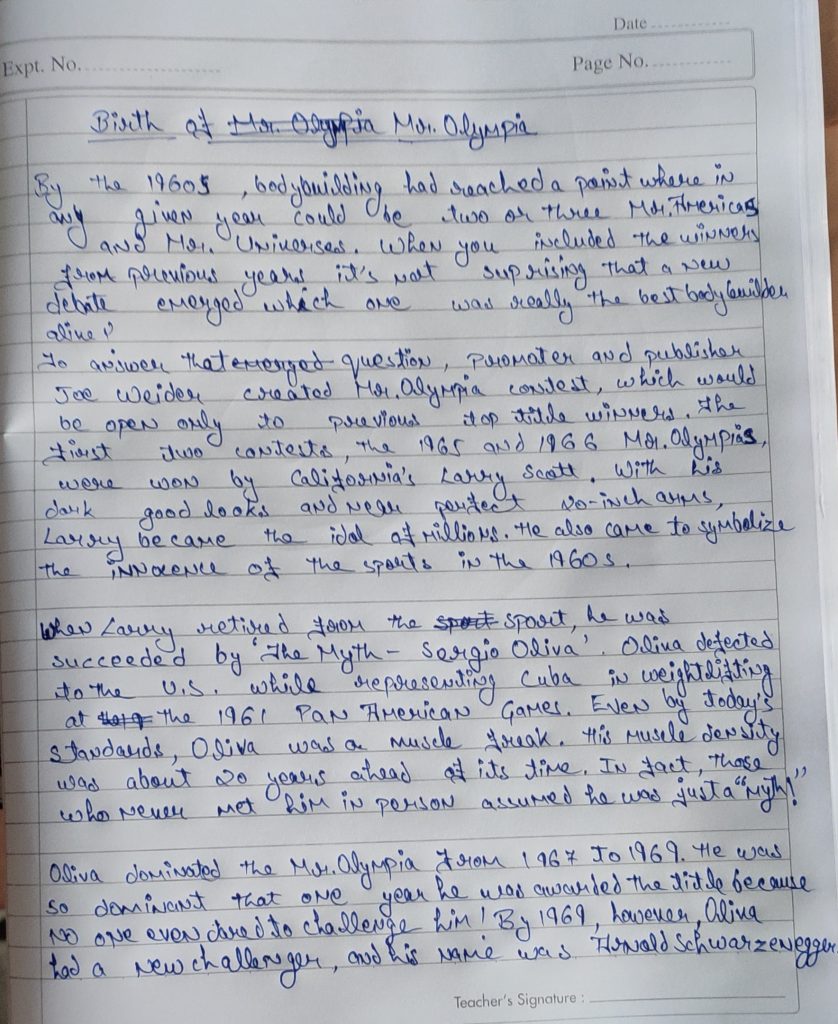 Date
Expt. No.
Page No.
Birth of Mr. Olympia Mr. Olympia
By the 1960s, bodybuilding had reached a point where in
any given year could be two or three Mr. Americas
and Mr. Universes. When you included the winners
from previous years it's not suprising that a new
debate emerged which one was really the best bodybuilder
alive?
To answer that emerged question, promoter and publisher
Joe Weider created Mr. Olympia contest, which would
be open only to previous top titde winners. The
first two contests, the 1965 and 1966 Mr. Olympias,
were won by California's Larry Scott. With his
dark good looks and near perfect 20-inch arms,
Larry became the idol of millions. He also came to symbolize
the innocence of the sports in the 1960s.
When Larry retired from the sport sport, he was
succeeded by 'The Myth - Sergio Oliva'. Oliva defected
to the U.S. while representing Cuba in weightlifting
at the 1961 Pan American Games. Even by today's
standards, Oliva was a muscle freak. His muscle density
was about 20 years ahead of its time. In fact, those
who never met him in person assumed he was just a "Myth!"
Oliva dominated the Mr. Olympia from 1967 to 1969. He was
so dominant that one year he was awarded the title because
no one even dared to challenge him! By 1969, however, Oliva
had a new challenger, and his name was Arnold Schwarzenegger.
Teacher's Signature :